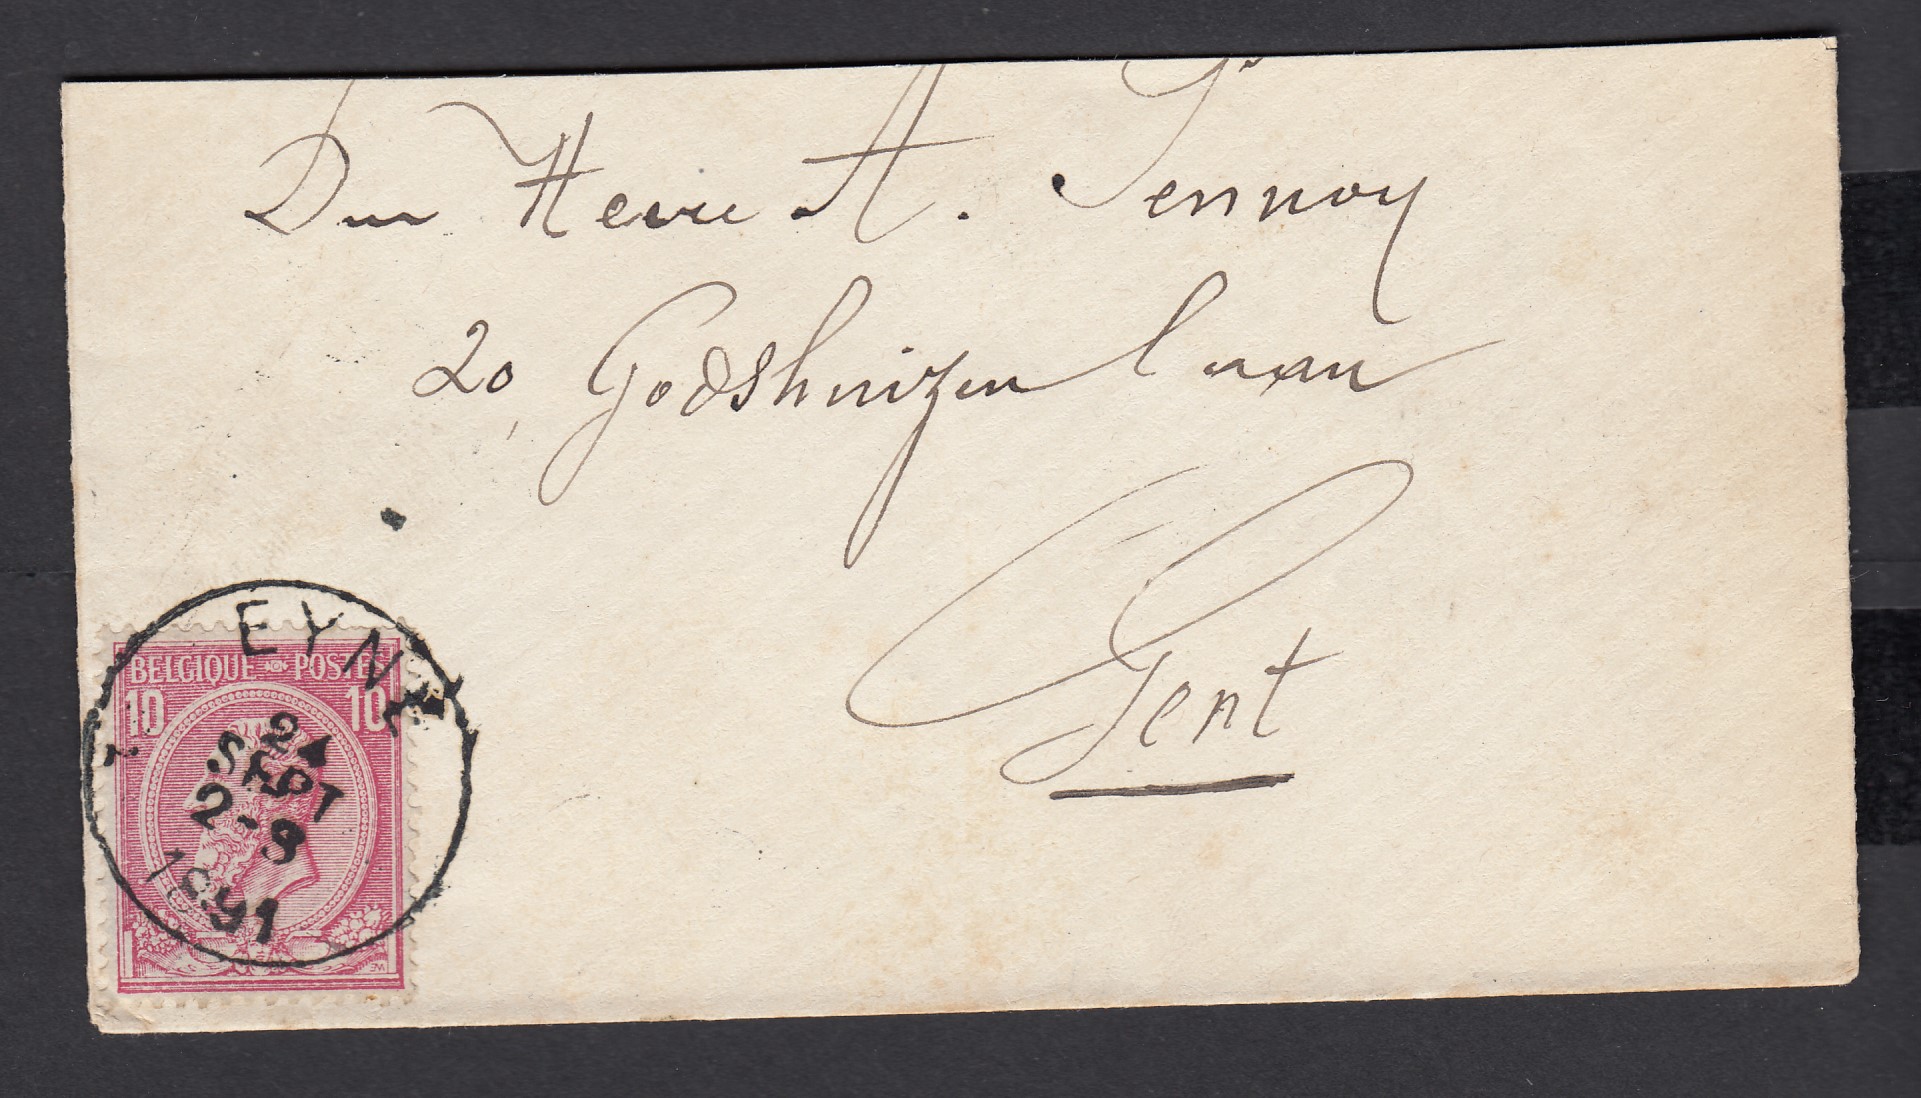 Den Heere A. Sennoy
20, Godshuizen laan
Gent
EYNE
BELGIQUE POSTES
10 10
24
SEPT
2-3
1891